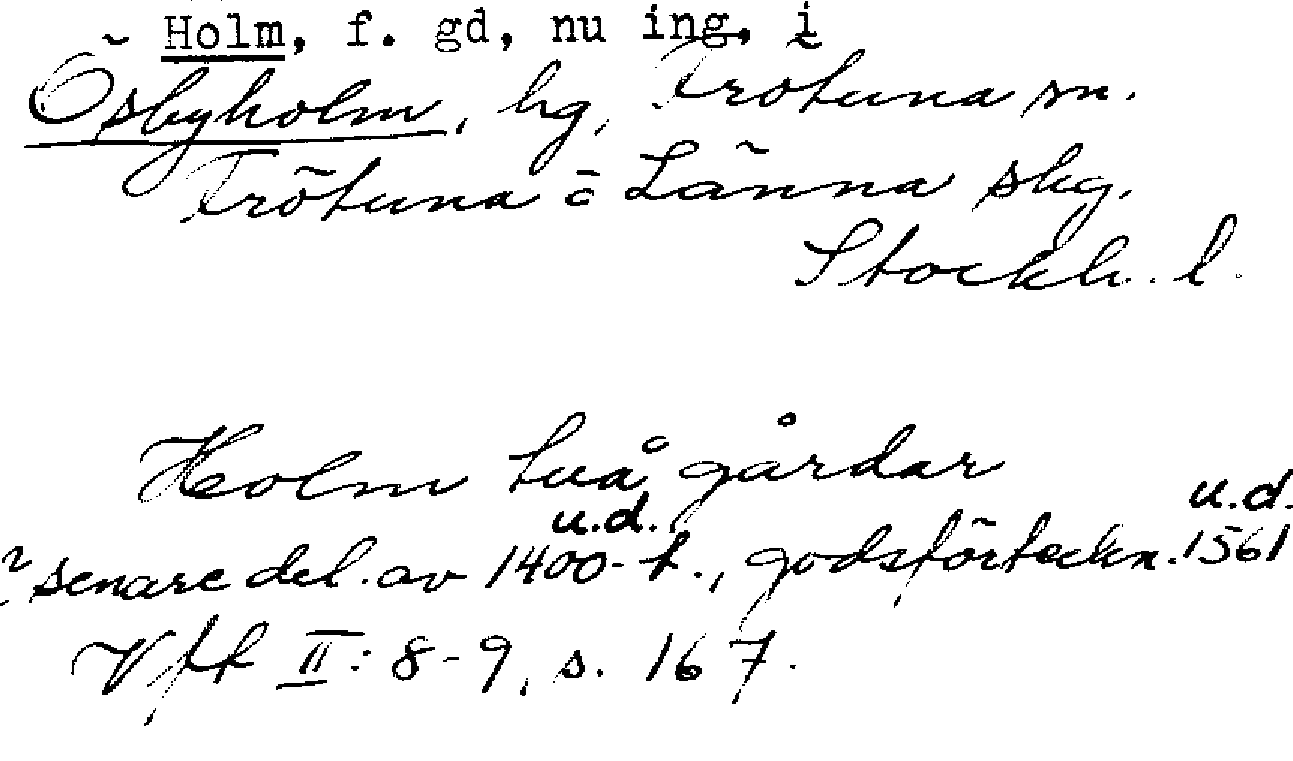 Holm, f. gd, nu ing. i
Ösbyholm, hg, Frötuna sn.
Frötuna o Länna skg.
Stockh. l.
Holm två gårdar
u.d. u.d.
senare del. av 1400-t., godsförteckn. 1561
Vft II: 8-9, s. 167.